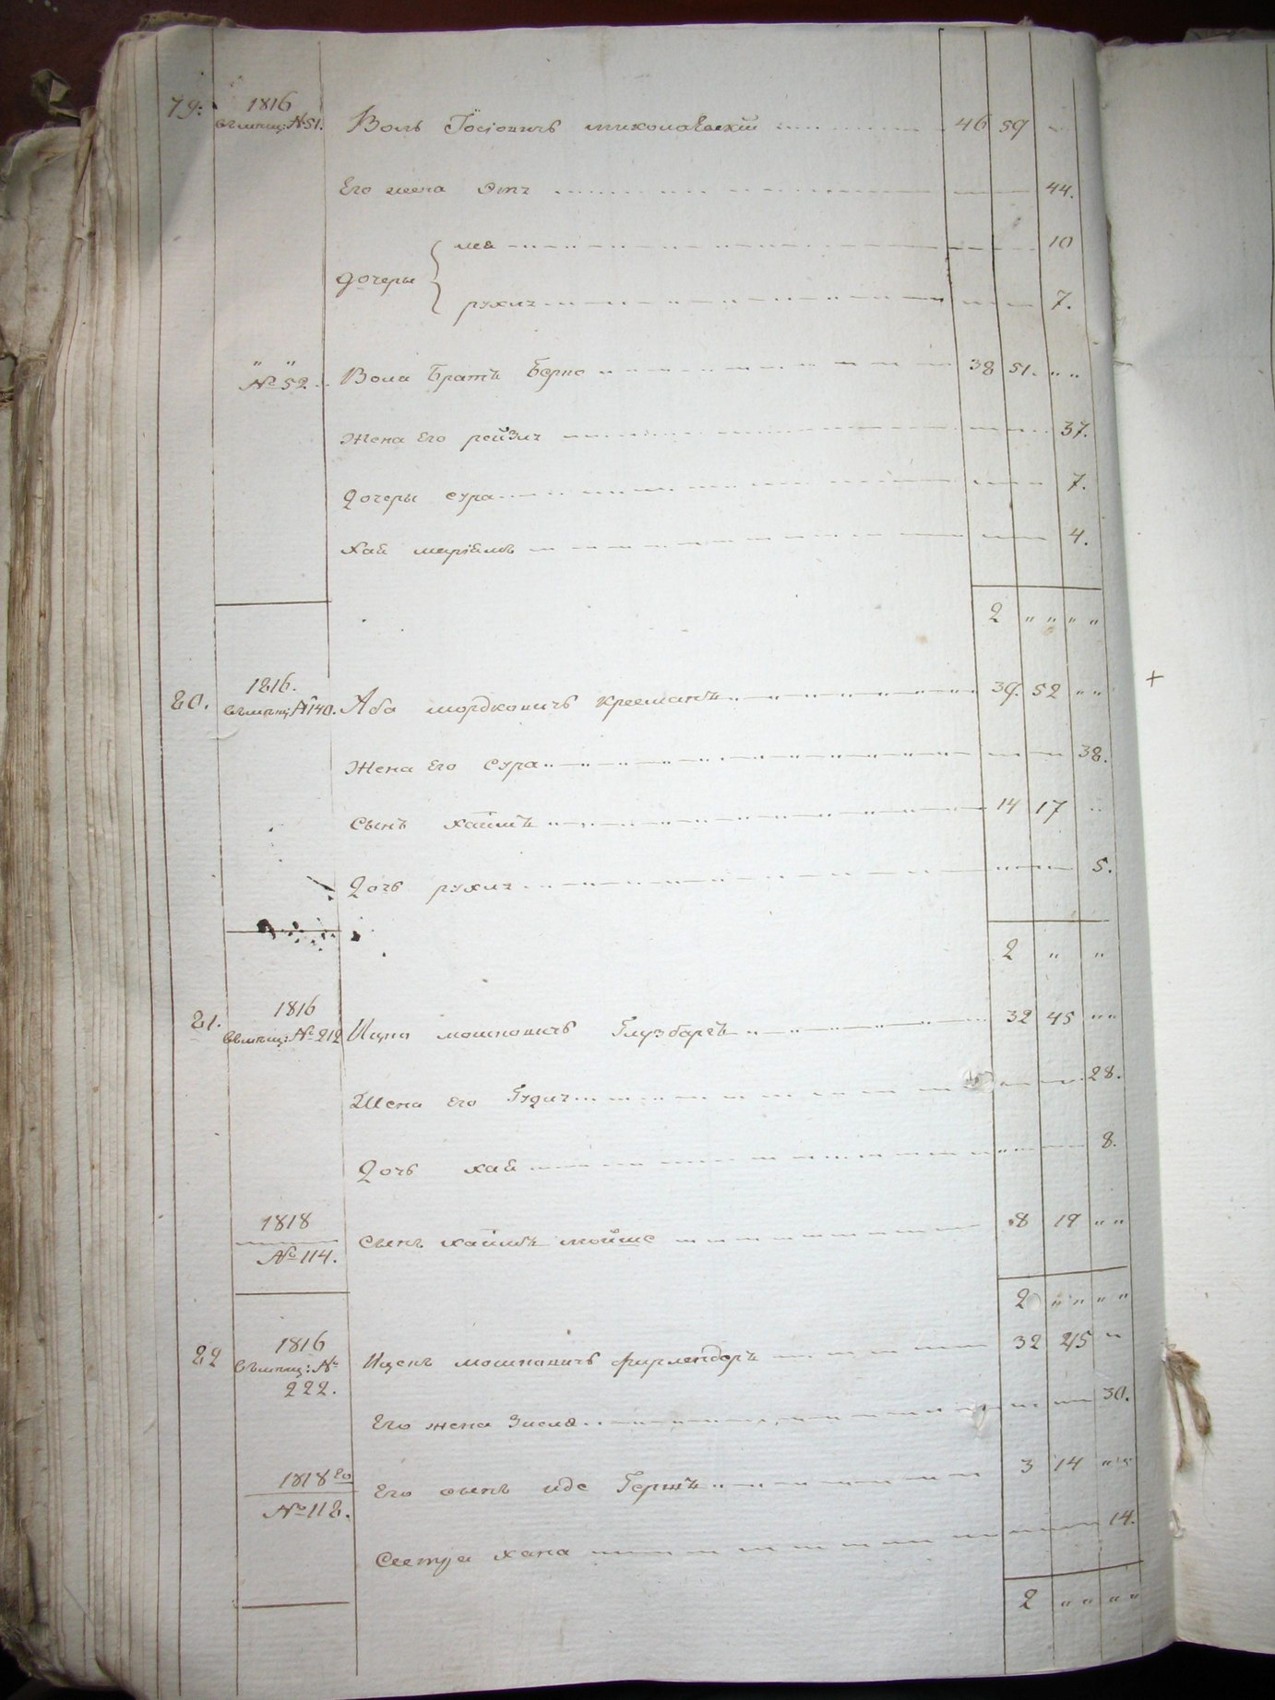 79. 1816 въ мѣщ: №51.Воль Іосіовичъ николаевскій 46 59
Его жена Этъ 44.
дочеры лея 10
рухля 7.
" " №52. Вола братъ Берко 38 51. " "
Жена Его рейзля 37.
дочеры сура 7.
хая маріямъ 4.
2 " " " "
80. 1816. въ мѣщ: №140. Аба мордковичъ 39. 52 " "
Жена Его Сура 38.
Сынъ хаимъ 14 17
Дочь рухля 5.
2 " "
81. 1816 въ мѣщ: №212 Ицко мошковичъ Глузбаргъ 32 45 " "
Жена Его Гудля 28.
Дочь хая 8.
1818 №114. Сынъ хаимъ мойше 8 19 " "
2 " " " "
82 1816 въ мѣщ: № 222. Ицекъ мошковичъ фирлендоръ 32 45 "
Его жена Зисля 30.
1818го №118. Его сынъ иде Гершъ 3 14 " "
Сестра хана 14.
2 " " " "